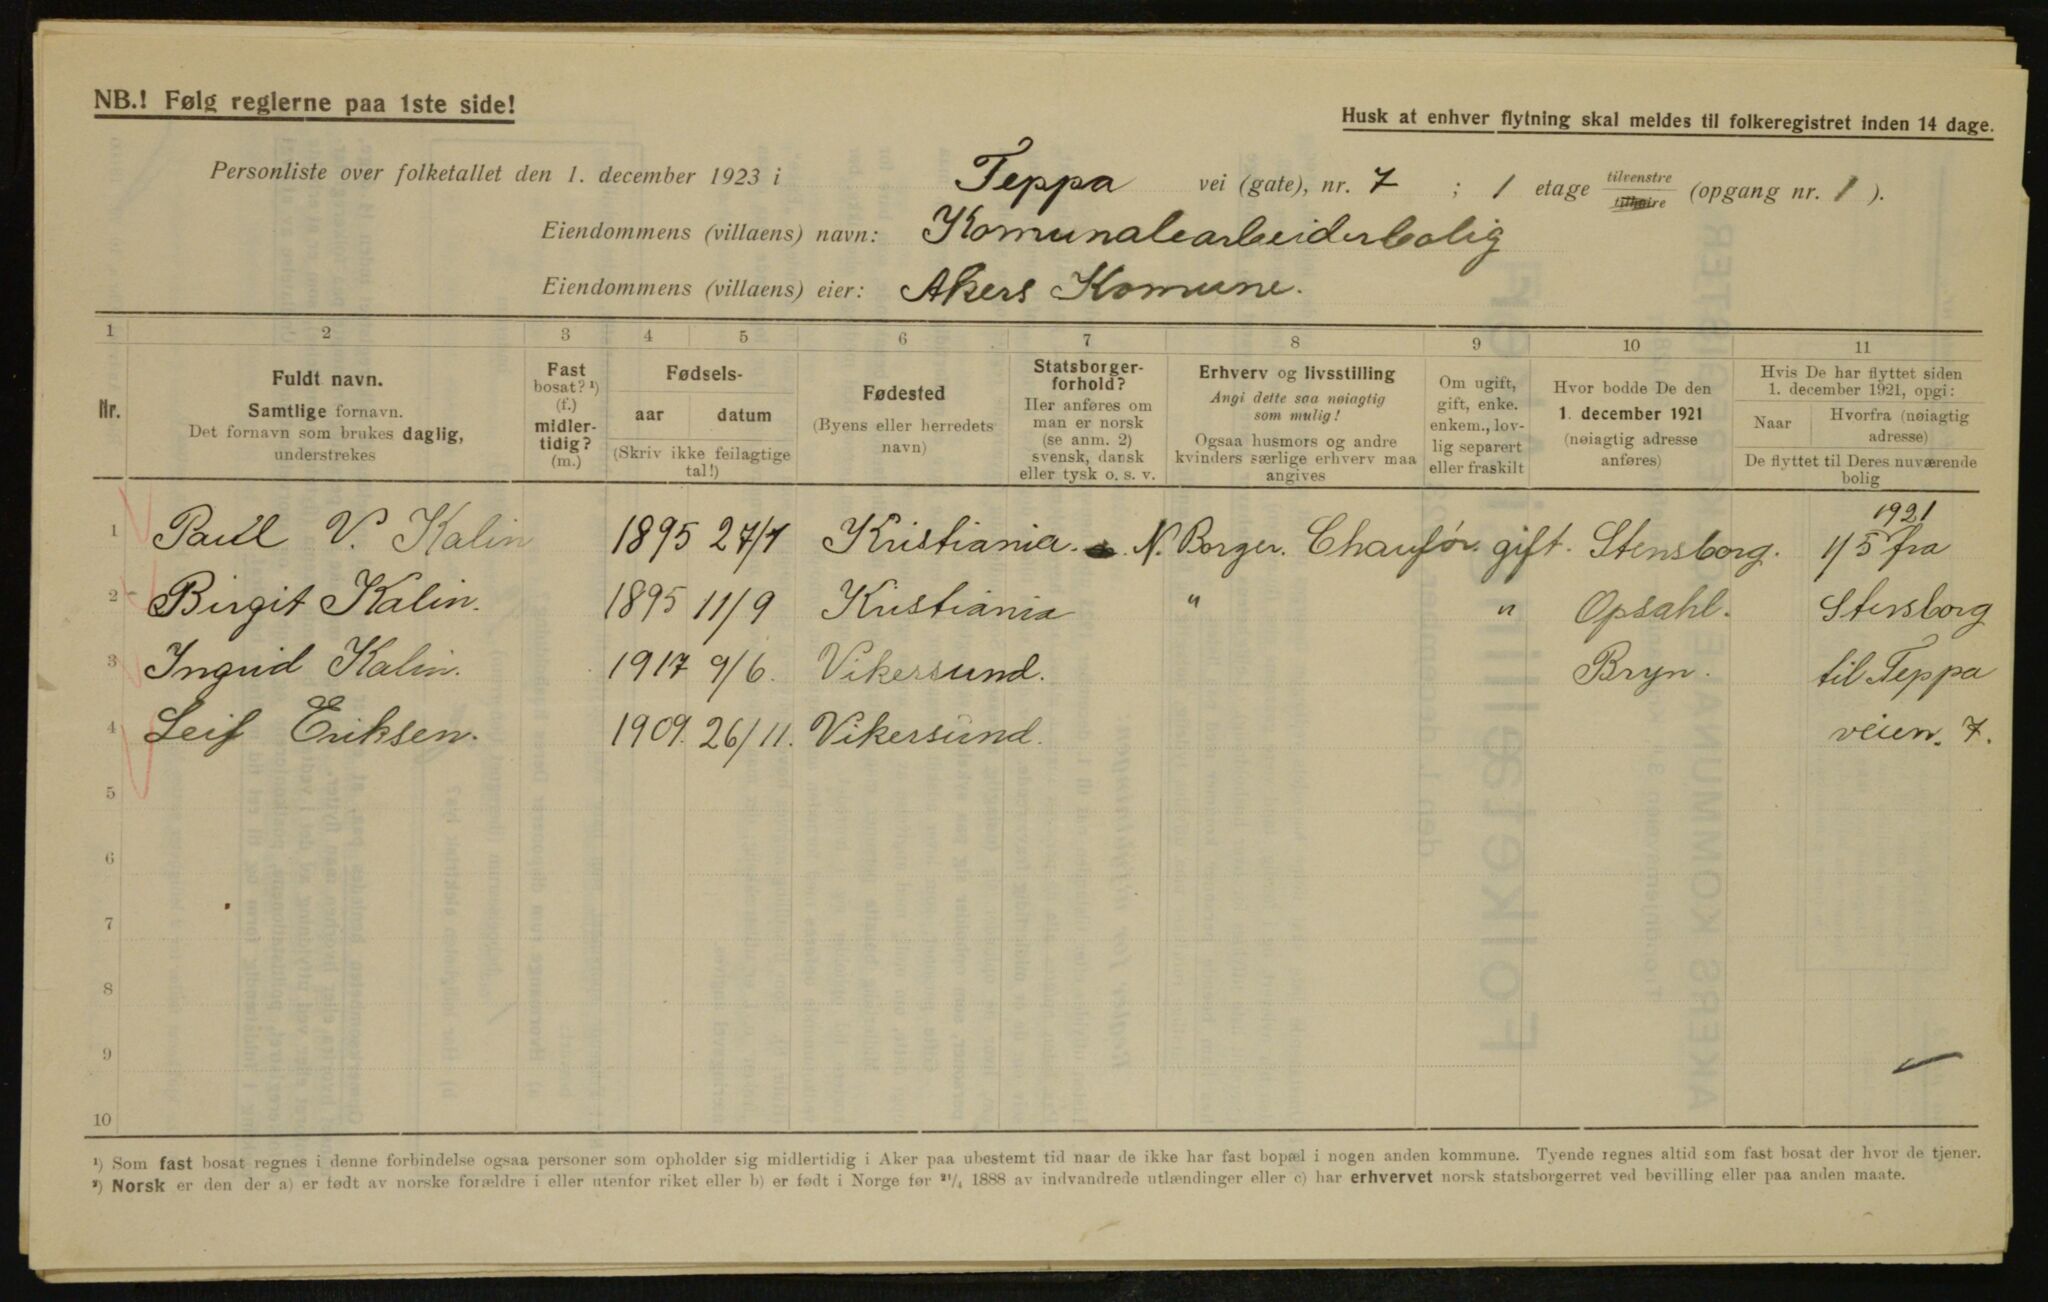 NB.! Følg reglerne paa 1ste side!
Husk at enhver flytning skal meldes til folkeregistret inden 14 dage.
Personliste over folketallet den 1. december 1923 i Teppa vei (gate), nr. 7 ; 1 etage tilvenstre tilhøire (opgang nr. 1 ).
Eiendommens (villaens) navn: Komunalearbeiderbolig
Eiendommens (villaens) eier: Akers Komune.
1 2 3 4 5 6 7 8 9 10 11
Nr.
Fuldt navn.
Samtlige fornavn.
Det fornavn som brukes daglig,
understrekes
Fast
bosat? ¹)
(f.)
midler-
tidig?
(m.)
Fødsels-
aar datum
(Skriv ikke feilagtige
tal!)
Fødested
(Byens eller herredets
navn)
Statsborger-
forhold?
Her anføres om
man er norsk
(se anm. 2)
svensk, dansk
eller tysk o. s. v.
Erhverv og livsstilling
Angi dette saa nøiagtig
som mulig!
Ogsaa husmors og andre
kvinders særlige erhverv maa
angives
Om ugift,
gift, enke.
enkem., lov-
lig separert
eller fraskilt
Hvor bodde De den
1. december 1921
(nøiagtig adresse
anføres)
Hvis De har flyttet siden
1. december 1921, opgi:
Naar
Hvorfra (nøiagtig
adresse)
De flyttet til Deres nuværende
bolig
1921
1 Paul V. Kalin 1895 27/7 Kristiania. N. Borger. Chaufør. gift. Stensborg. 1/5 fra
2 Birgit Kalin. 1895 11/9 Kristiania " " Opsahl. Stensborg
3 Ingrid Kalin. 1917 9/6. Vikersund. Bryn. til Teppa
4 Leif Eriksen. 1909. 26/11. Vikersund. veien. 7.
5
6
7
8
9
10
¹) Som fast bosat regnes i denne forbindelse ogsaa personer som opholder sig midlertidig i Aker paa ubestemt tid naar de ikke har fast bopæl i nogen anden kommune. Tyende regnes altid som fast bosat der hvor de tjener.
²) Norsk er den der a) er født av norske forældre i eller utenfor riket eller b) er født i Norge før ²¹/₄ 1888 av indvandrede utlændinger eller c) har erhvervet norsk statsborgerret ved bevilling eller paa anden maate.